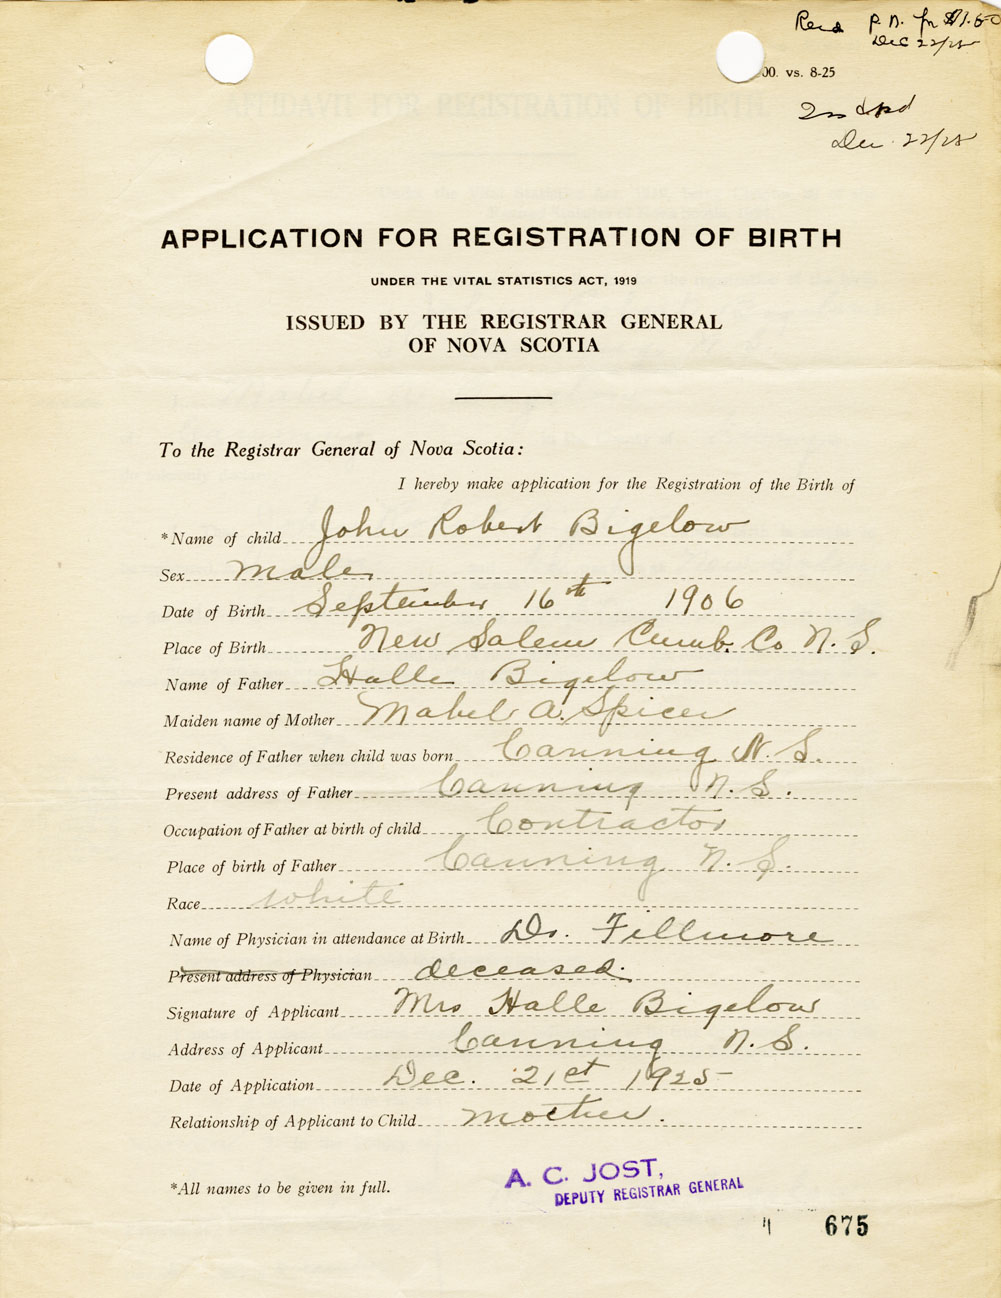 Recd P.N. for $1.50
Dec 22/25
00. vs. 8-25
Dec. 22/25
APPLICATION FOR REGISTRATION OF BIRTH
UNDER THE VITAL STATISTICS ACT, 1919
ISSUED BY THE REGISTRAR GENERAL
OF NOVA SCOTIA
To the Registrar General of Nova Scotia:
I hereby make application for the Registration of the Birth of
*Name of child John Robert Bigelow
Sex Male
Date of Birth September 16th 1906
Place of Birth New Salem Cumb. Co N.S.
Name of Father Halle Bigelow
Maiden name of Mother Mabel A. Spicer
Residence of Father when child was born Canning N.S.
Present address of Father Canning N.S.
Occupation of Father at birth of child Contractor
Place of birth of Father Canning N.S.
Race White
Name of Physician in attendance at Birth Dr. Fillmore
Present address of Physician deceased.
Signature of Applicant Mrs Halle Bigelow
Address of Applicant Canning N.S.
Date of Application Dec. 21st 1925
Relationship of Applicant to Child Mother.
*All names to be given in full.
A. C. JOST,
DEPUTY REGISTRAR GENERAL
675